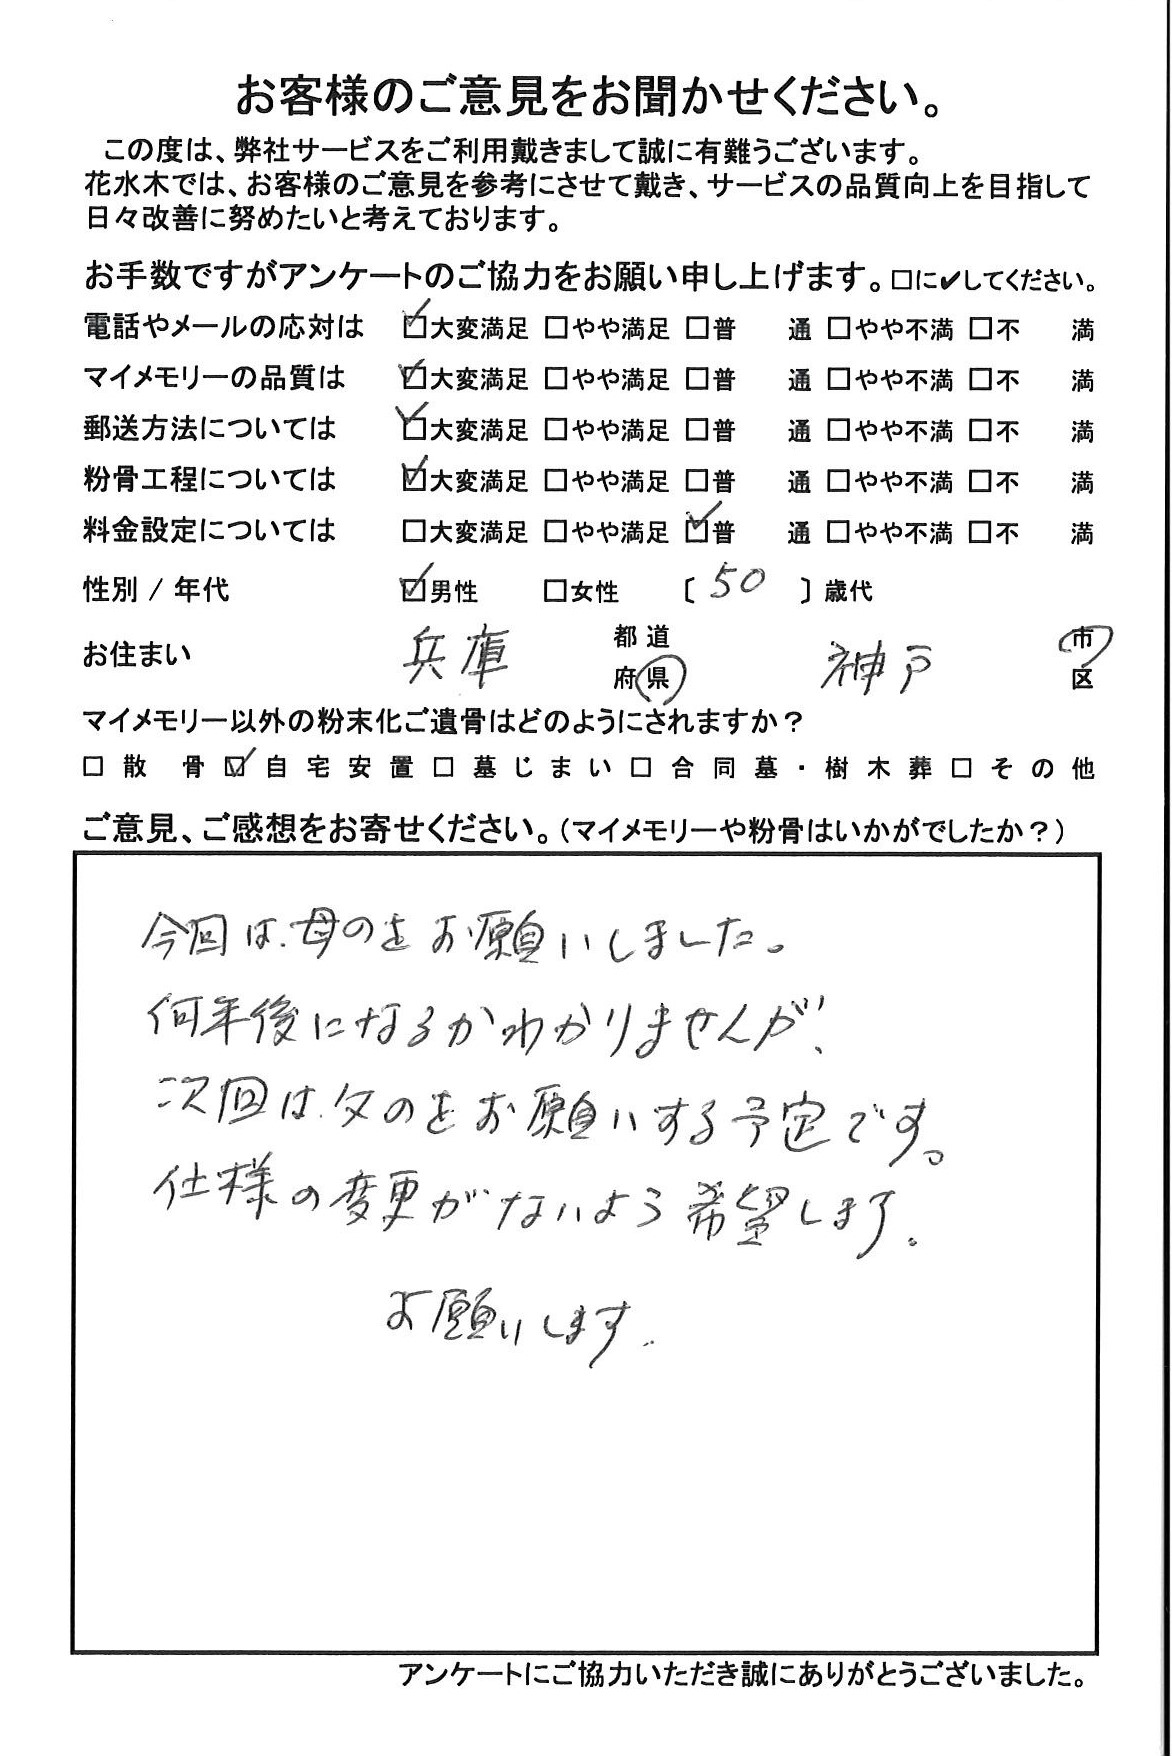 お客様のご意見をお聞かせください。
この度は、弊社サービスをご利用戴きまして誠に有難うございます。
花水木では、お客様のご意見を参考にさせて戴き、サービスの品質向上を目指して
日々改善に努めたいと考えております。
お手数ですがアンケートのご協力をお願い申し上げます。□に✔してください。
電話やメールの応対は ☑大変満足 □やや満足 □普 通 □やや不満 □不 満
マイメモリーの品質は ☑大変満足 □やや満足 □普 通 □やや不満 □不 満
郵送方法については ☑大変満足 □やや満足 □普 通 □やや不満 □不 満
粉骨工程については ☑大変満足 □やや満足 □普 通 □やや不満 □不 満
料金設定については □大変満足 □やや満足 ☑普 通 □やや不満 □不 満
性別 / 年代 ☑男性 □女性 〔 50 〕歳代
お住まい 兵庫 都道府県 神戸 市区
マイメモリー以外の粉末化ご遺骨はどのようにされますか?
□ 散 骨 ☑ 自宅安置 □ 墓じまい □ 合同墓・樹木葬 □ その他
ご意見、ご感想をお寄せください。(マイメモリーや粉骨はいかがでしたか?)
今回は、母のをお願いしました。
何年後になるかわかりませんが、
次回は、父のをお願いする予定です。
仕様の変更がないよう希望します。
お願いします。
アンケートにご協力いただき誠にありがとうございました。